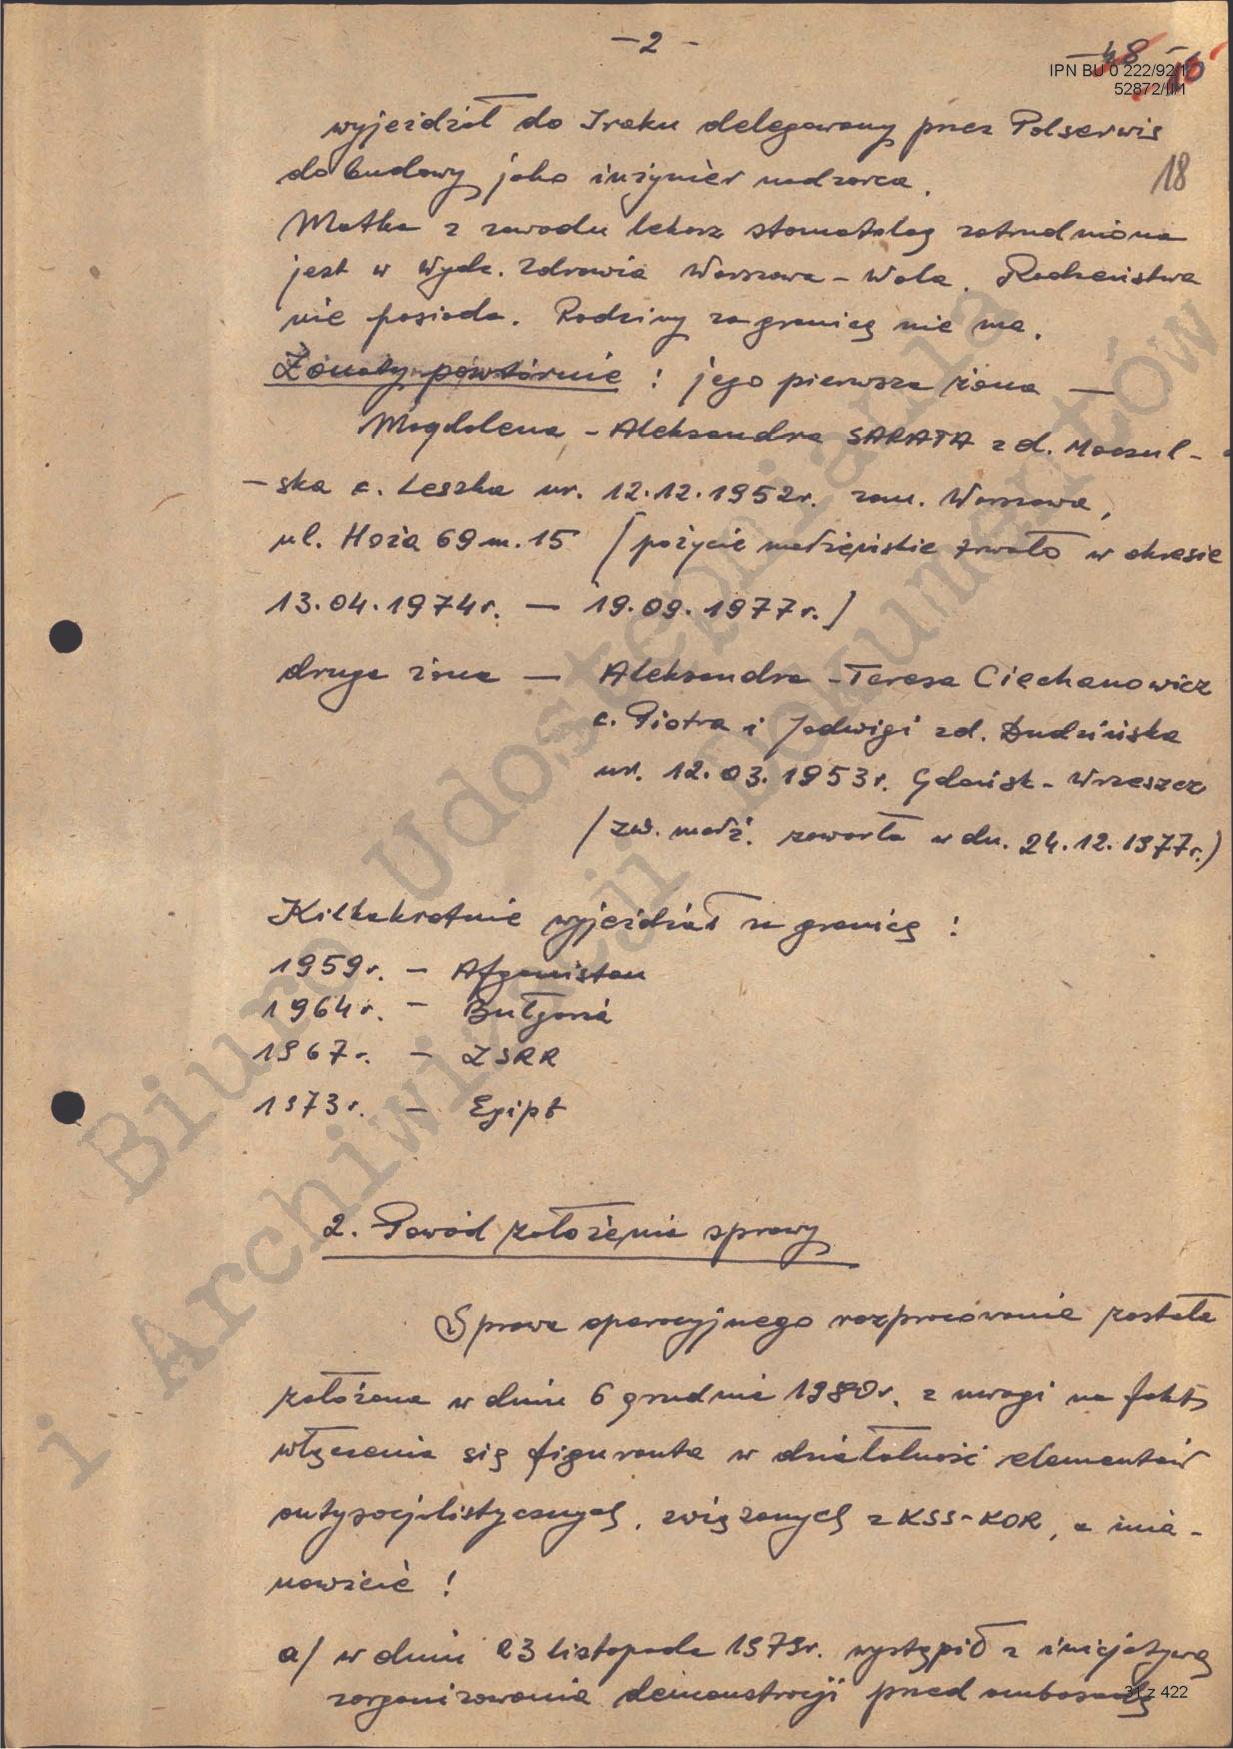 -2-
48
16
IPN BU 0 222/92/1
52872/II/1
wyjeżdżał do Iraku delegowany przez Polserwis
do budowy jako inżynier nadzorca.
18
Matka z zawodu lekarz stomatolog zatrudniona
jest w Wydz. Zdrowia Warszawa - Wola. Rodzeństwa
nie posiada. Rodziny za granicą nie ma.
Żonaty powtórnie : jego pierwsza żona —
Magdalena - Aleksandra SARATA z d. Moczul-
-ska c. Leszka ur. 12.12.1952r. zam. Warszawa,
ul. Hoża 69 m. 15 /pożycie małżeńskie trwało w okresie
13.04.1974r. — 19.09.1977r./
druga żona — Aleksandra - Teresa Ciechanowicz
c. Piotra i Jadwigi zd. Dudzińska
ur. 12.03.1953r. Gdańsk - Wrzeszcz
/zw. małż. zawarła w dn. 24.12.1977r./
Kilkakrotnie wyjeżdżał za granicę :
1959r. - Afganistan
1964r. - Bułgaria
1967r. - ZSRR
1973r. - Egipt
2. Powód założenia sprawy
Sprawa operacyjnego rozpracowania została
założona w dniu 6 grudnia 1980r. z uwagi na fakt
włączenia się figuranta w działalność elementów
antysocjalistycznych, związanych z KSS-KOR, a mia-
nowicie :
a/ w dniu 23 listopada 1979r. wystąpił z inicjatywą
zorganizowania demonstracji przed ambasadą
31 z 422
Biuro Udostępniania
i Archiwizacji Dokumentów